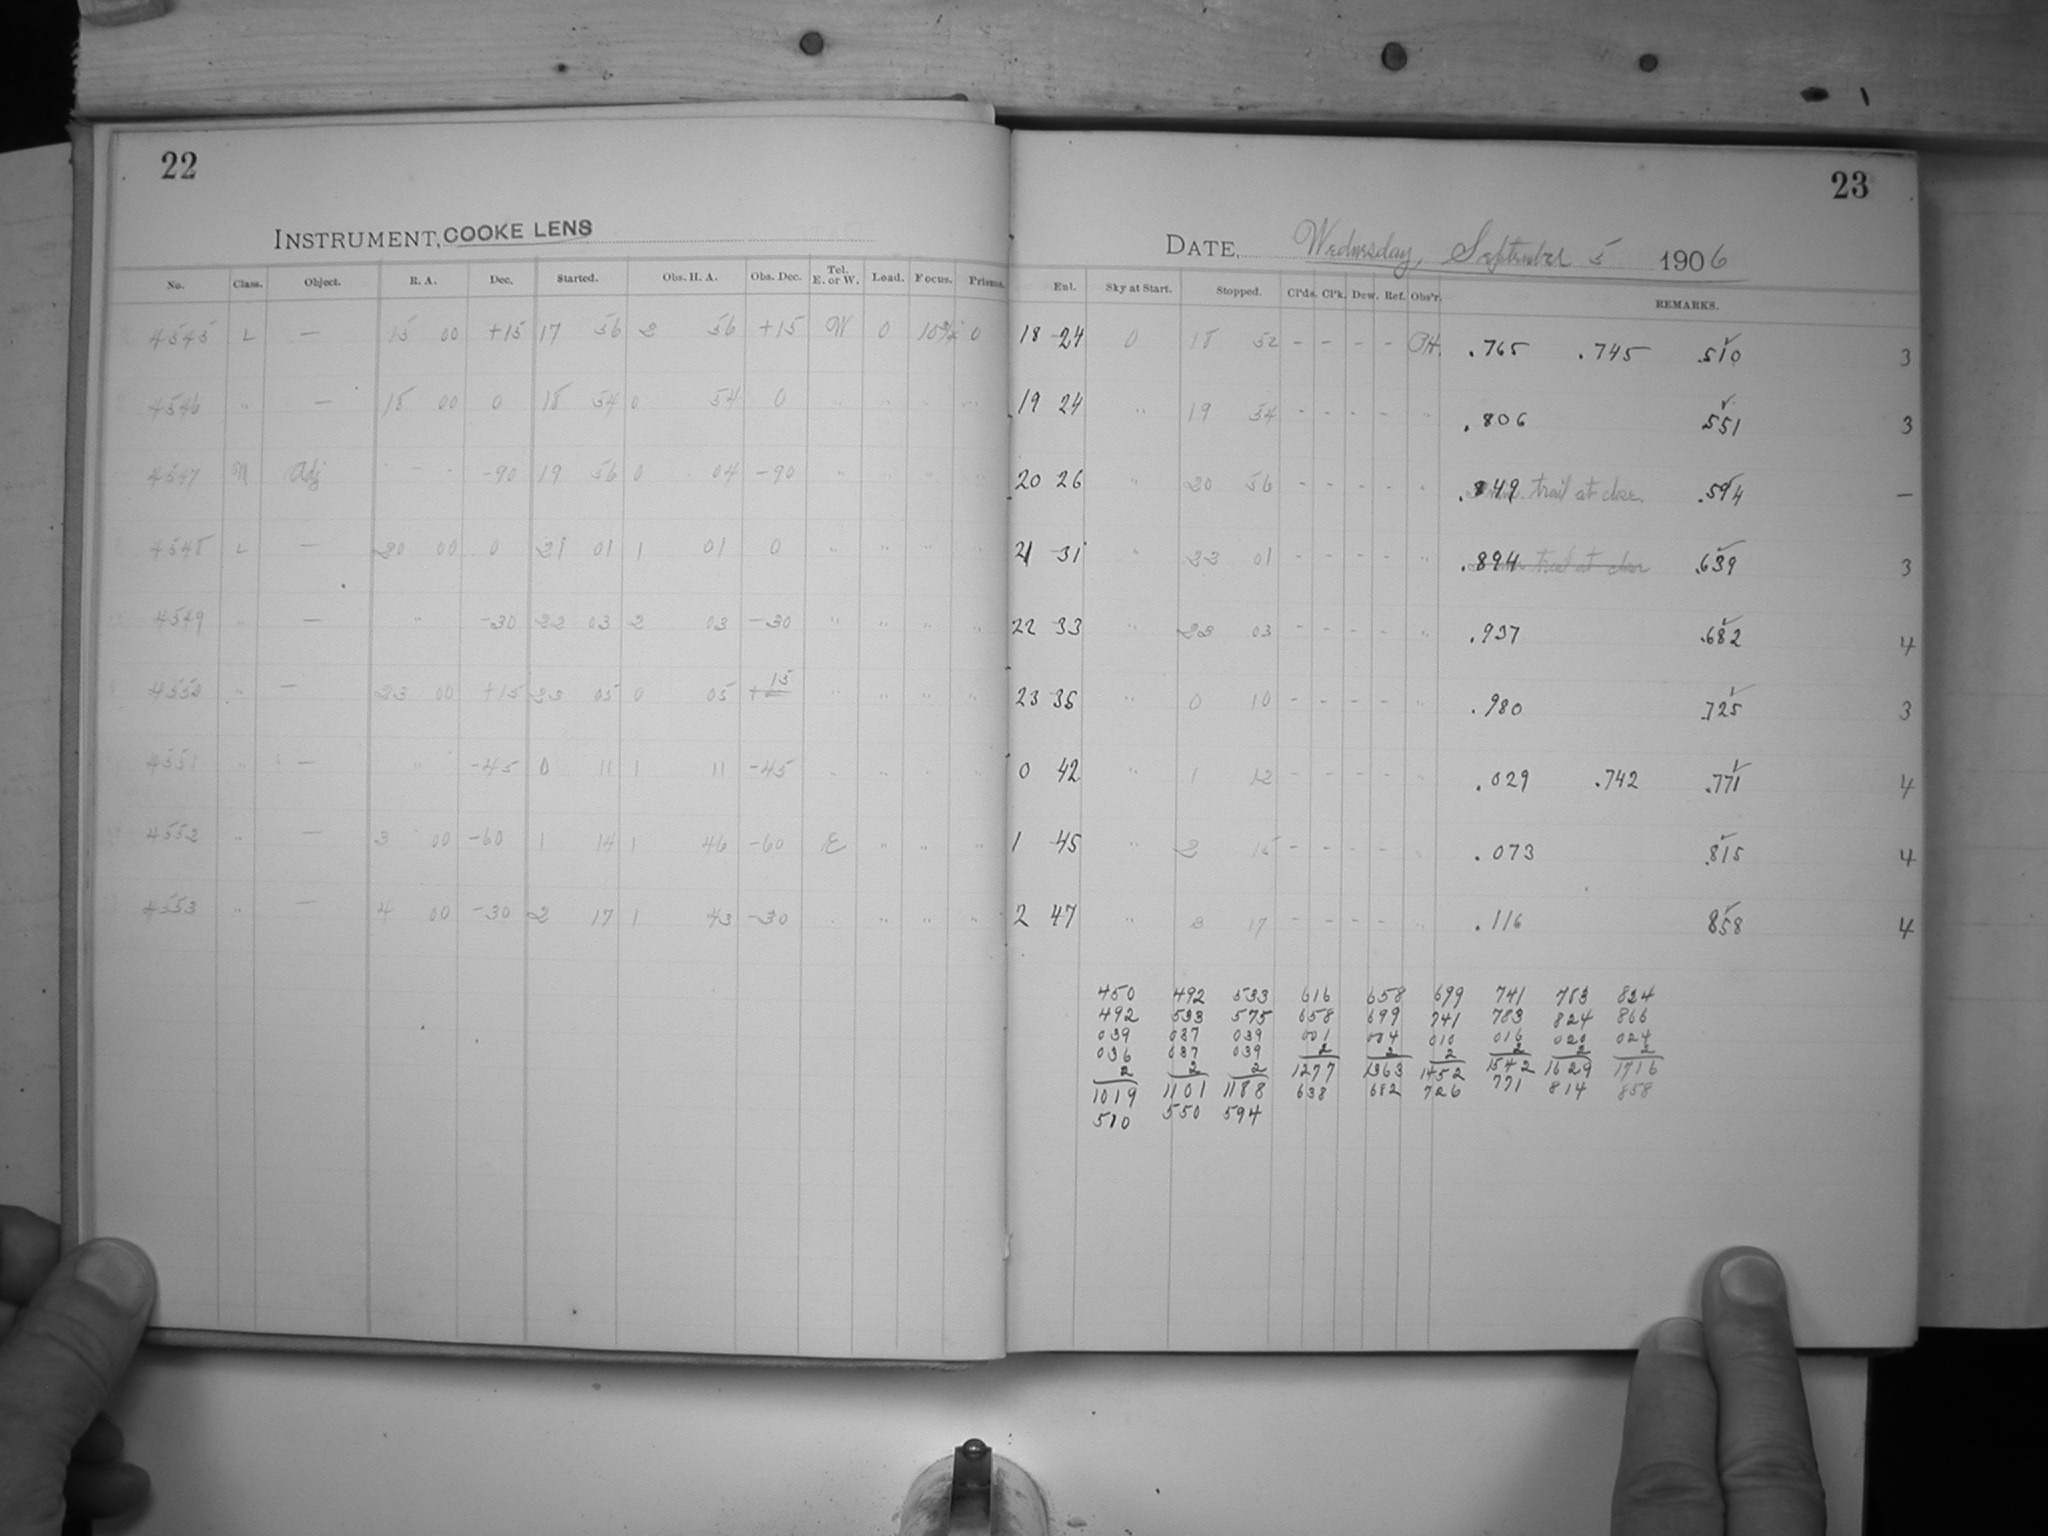 22
INSTRUMENT, COOKE LENS
No. Class. Object. R. A. Dec. Started. Obs. H. A. Obs. Dec. Tel. E. or W. Load. Focus. Prisms.
4545 L — 15 00 +15 17 56 2 56 +15 W 0 0
4546 " — 18 00 0 18 54 0 54 0 " " " "
4547 M Adj - - - -90 19 56 0 04 -90 " " " "
4548 L — 20 00 0 21 01 1 01 0 " " " "
4549 " — " -30 22 03 2 03 -30 " " " "
4550 " — 23 00 +15 23 05 0 05 +15 " " " "
4551 " — " -45 0 11 1 11 -45 " " " "
4552 " — 3 00 -60 1 14 1 46 -60 E " " "
4553 " — 4 00 -30 2 17 1 43 -30 " " " "
23
DATE, Wednesday, September 5 1906
Enl. Sky at Start. Stopped. Cl'ds. Cl'k. Dew. Ref. Obs'r. REMARKS.
18 24 0 18 52 - - - - .765 .745 .510 3
19 24 " 19 54 - - - - " .806 .551 3
20 26 " 20 56 - - - - " .849 trail at close. .594 —
21 31 " 22 01 - - - - " .894 trail at close .639 3
22 33 " 23 03 - - - - " .937 .682 4
23 36 " 0 10 - - - - " .980 .725 3
0 42 " 1 12 - - - - " .029 .742 .771 4
1 45 " 2 15 - - - - " .073 .815 4
2 47 " 3 17 - - - - " .116 .858 4
450 492 533 616 658 699 741 783 824
492 533 575 658 699 741 783 824 866
039 037 039 001 004 010 016 020 024
036 037 039 2 2 2 2 2 2
2 2 2 1277 1363 1452 1542 1629 1716
1019 1101 1188 638 682 726 771 814 858
510 550 594